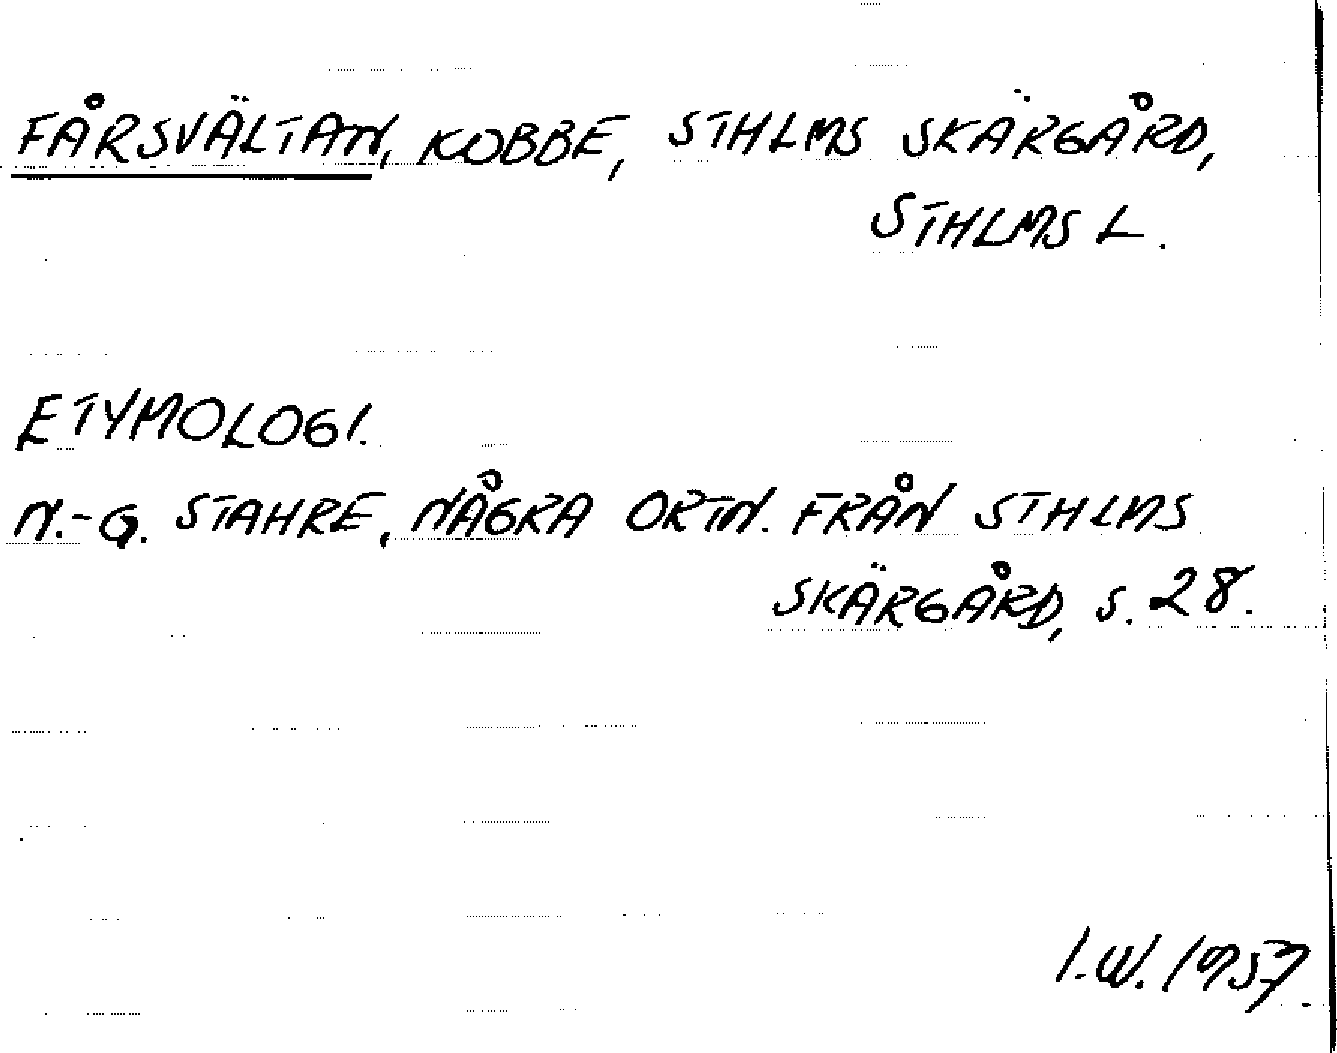 FÅRSVÄLTAN, KOBBE, STHLMS SKÄRGÅRD,
STHLMS L.
ETYMOLOGI.
N.-G. STAHRE, NÅGRA ORTN. FRÅN STHLMS
SKÄRGÅRD, S. 28.
I.W. 1957.